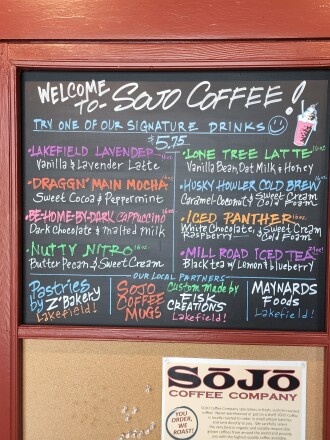 WELCOME
TO- SOJO COFFEE!
TRY ONE OF OUR SIGNATURE DRINKS
$5.75
•LAKEFIELD LAVENDER
Vanilla & Lavender Latte
•DRAGGN' MAIN MOCHA
Sweet Cocoa & Peppermint
•BE-HOME-BY-DARK CAPPUCCINO
Dark Chocolate & Malted Milk
•NUTTY NITRO
Butter Pecan & Sweet Cream
•LONE TREE LATTE
Vanilla Bean, Oat Milk & Honey
•HUSKY HOWLER COLD BREW
Caramel-Coconut & Sweet Cream
Cold Foam
•ICED PANTHER
White Chocolate, & Sweet Cream
Raspberry Cold Foam
•MILL ROAD ICED TEA
Black tea w/ Lemon & blueberry
-OUR LOCAL PARTNERS-
Pastries
by Z' Bakery
Lakefield!
SOJO
COFFEE
MUGS
Custom made by
FISK
CREATIONS
Lakefield!
MAYNARDS
Foods
Lakefield!
SōJō
COFFEE COMPANY
YOU ORDER,
WE
ROAST!